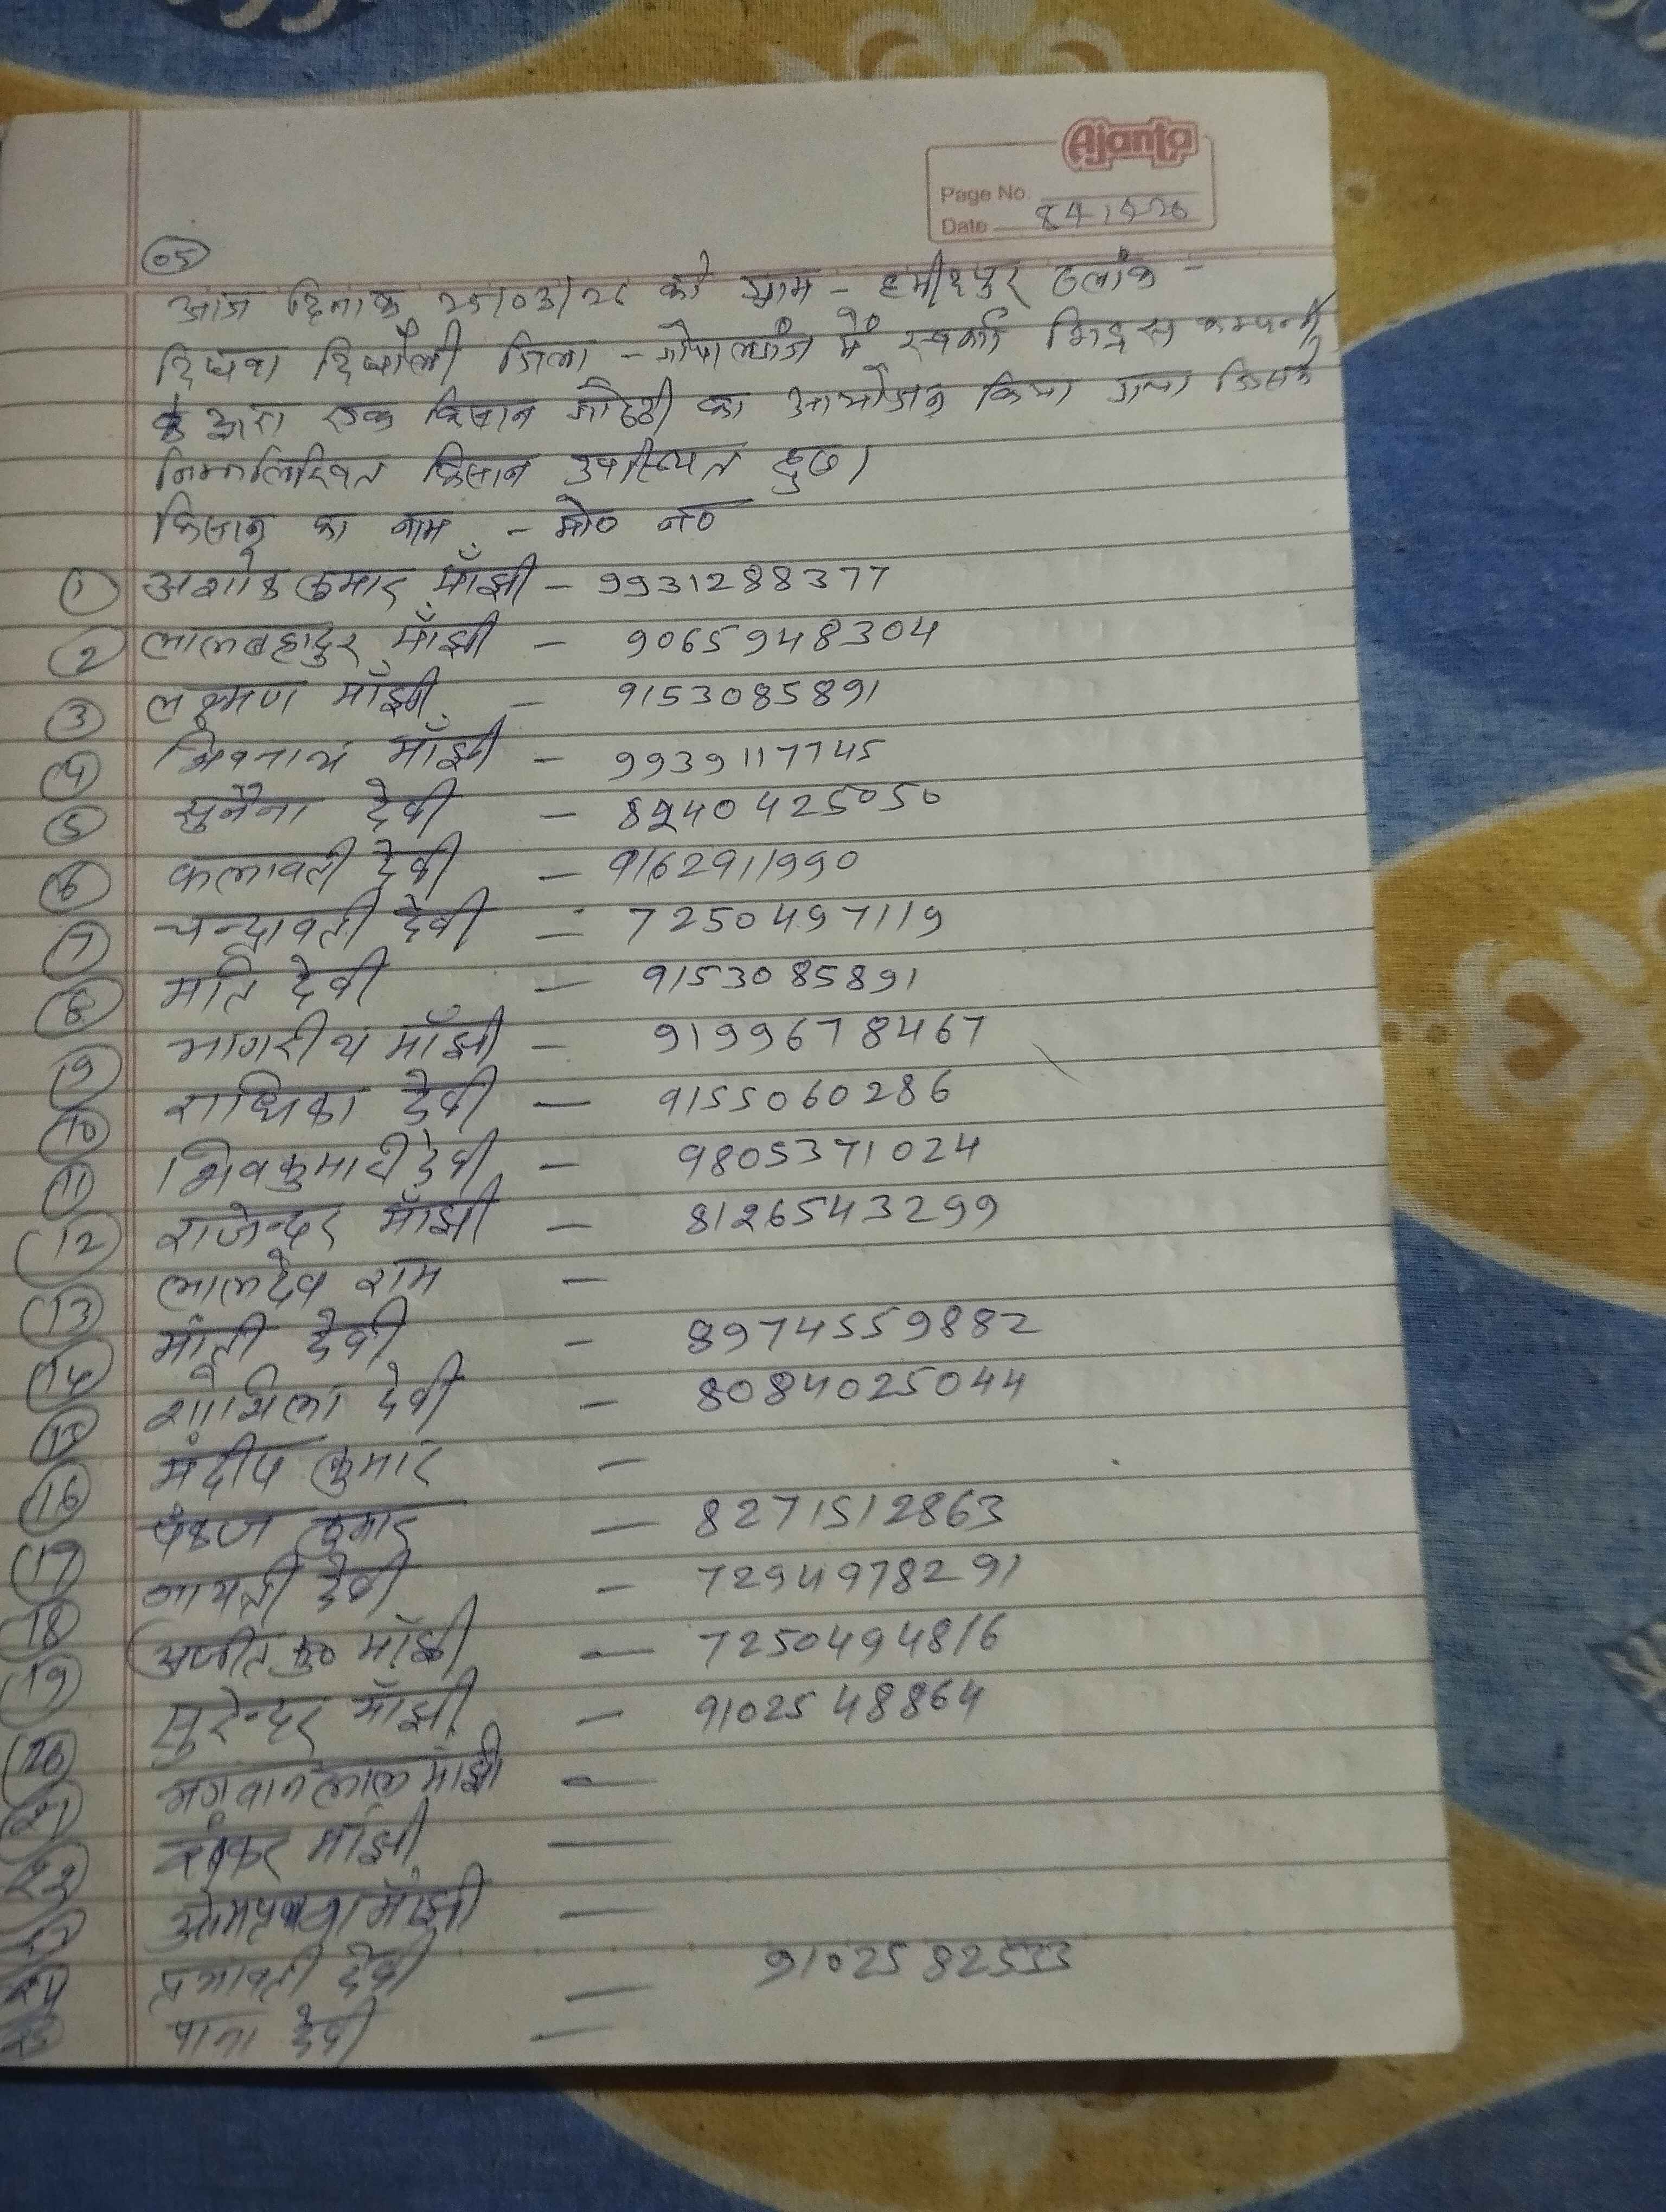 Ajanta
Page No.
Date
05
आज दिनांक 25/03/26 को ग्राम - हमीरपुर ब्लॉक -
दिघवा दिघौली जिला - गोपालगंज में स्वर्का सिड्स कम्पनी
के द्वारा एक किसान गोष्ठी का आयोजन किया गया जिसमें
निम्नलिखित किसान उपस्थित हुए।
किसान का नाम - मो० न०
1 अशोक कुमार माँझी - 9931288377
2 लालबहादुर माँझी - 9065948304
3 लक्ष्मण माँझी - 9153085891
4 शिवनाथ माँझी - 9939117745
5 सुनैना देवी - 8240425050
6 कलावती देवी - 9162911990
7 चन्द्रावती देवी - 7250497119
8 मति देवी - 9153085891
9 भागरीथ माँझी - 9199678467
10 राधिका देवी - 9155060286
11 शिवकुमारी देवी - 9805371024
12 राजेन्दर माँझी - 8126543299
13 लालदेव राम -
14 मांती देवी - 89745559882
15 देवी - 8084025044
16 संदीप कुमार -
17 पंकज कुमार - 8271512863
18 गायत्री देवी - 7294978291
19 अजीत कु० माँझी - 7250494816
20 सुरेन्दर माँझी - 9102548864
21 भगवानलाल माँझी -
22 शंकर माँझी -
23 ओमप्रकाश माँझी -
24 प्रभावती देवी - 9102582553
25 पाना देवी -